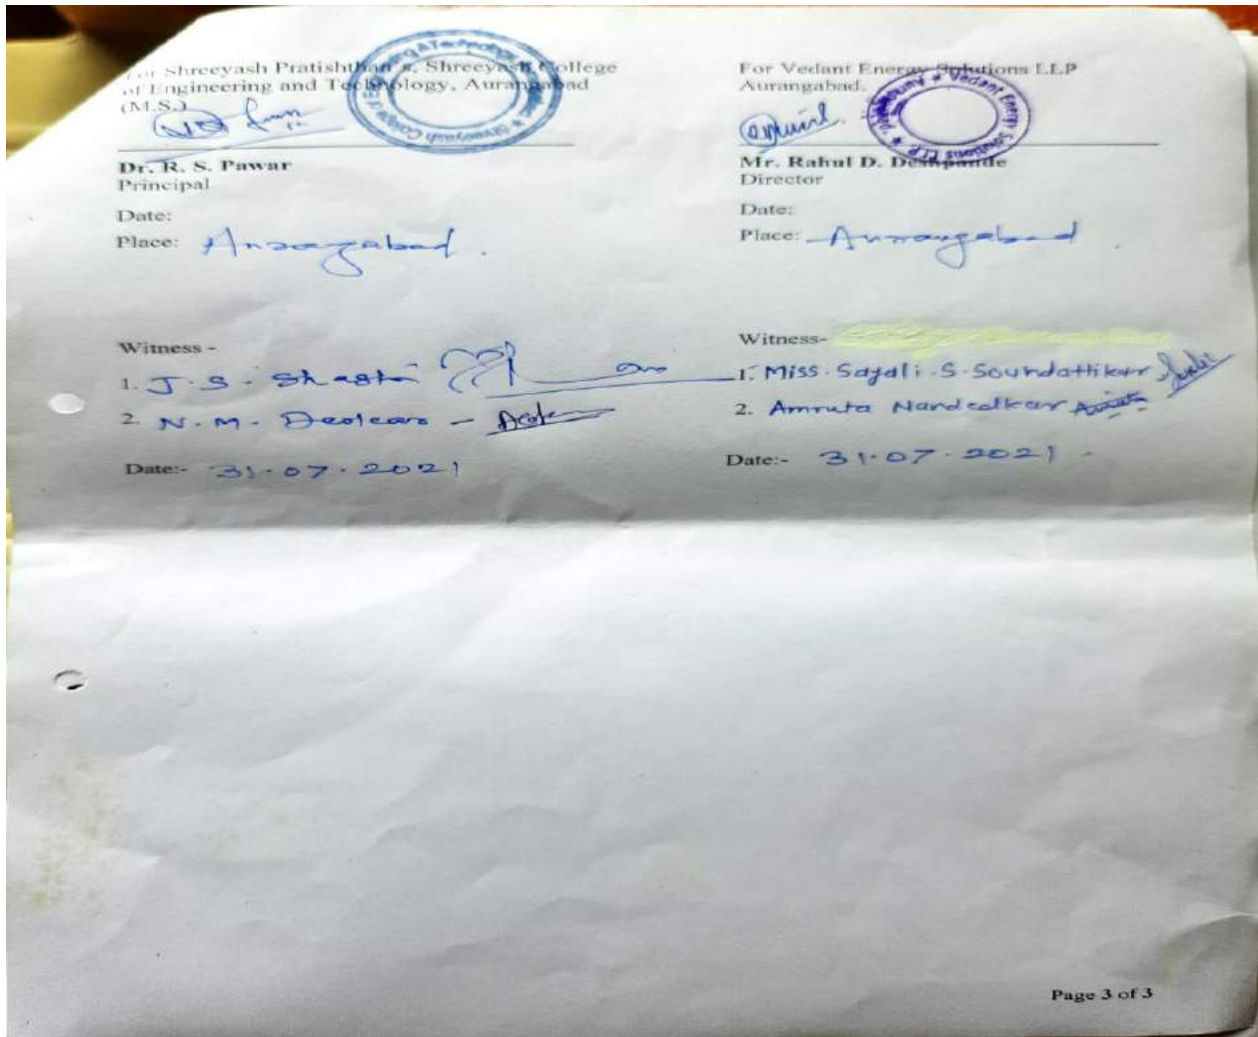 For Shreeyash Pratishthan's, Shreeyash College
of Engineering and Technology, Aurangabad
(M.S.)
Dr. R. S. Pawar
Principal
Date:
Place: Aurangabad.
Witness -
1. J. S. Shastri
2. N. M. Deolcar -
Date:- 31.07.2021
For Vedant Energy Solutions LLP
Aurangabad.
Mr. Rahul D. Deshpande
Director
Date:
Place: Aurangabad.
Witness-
1. Miss. Sayali. S. Soundattikar
2. Amruta Nandedkar
Date:- 31.07.2021
Page 3 of 3